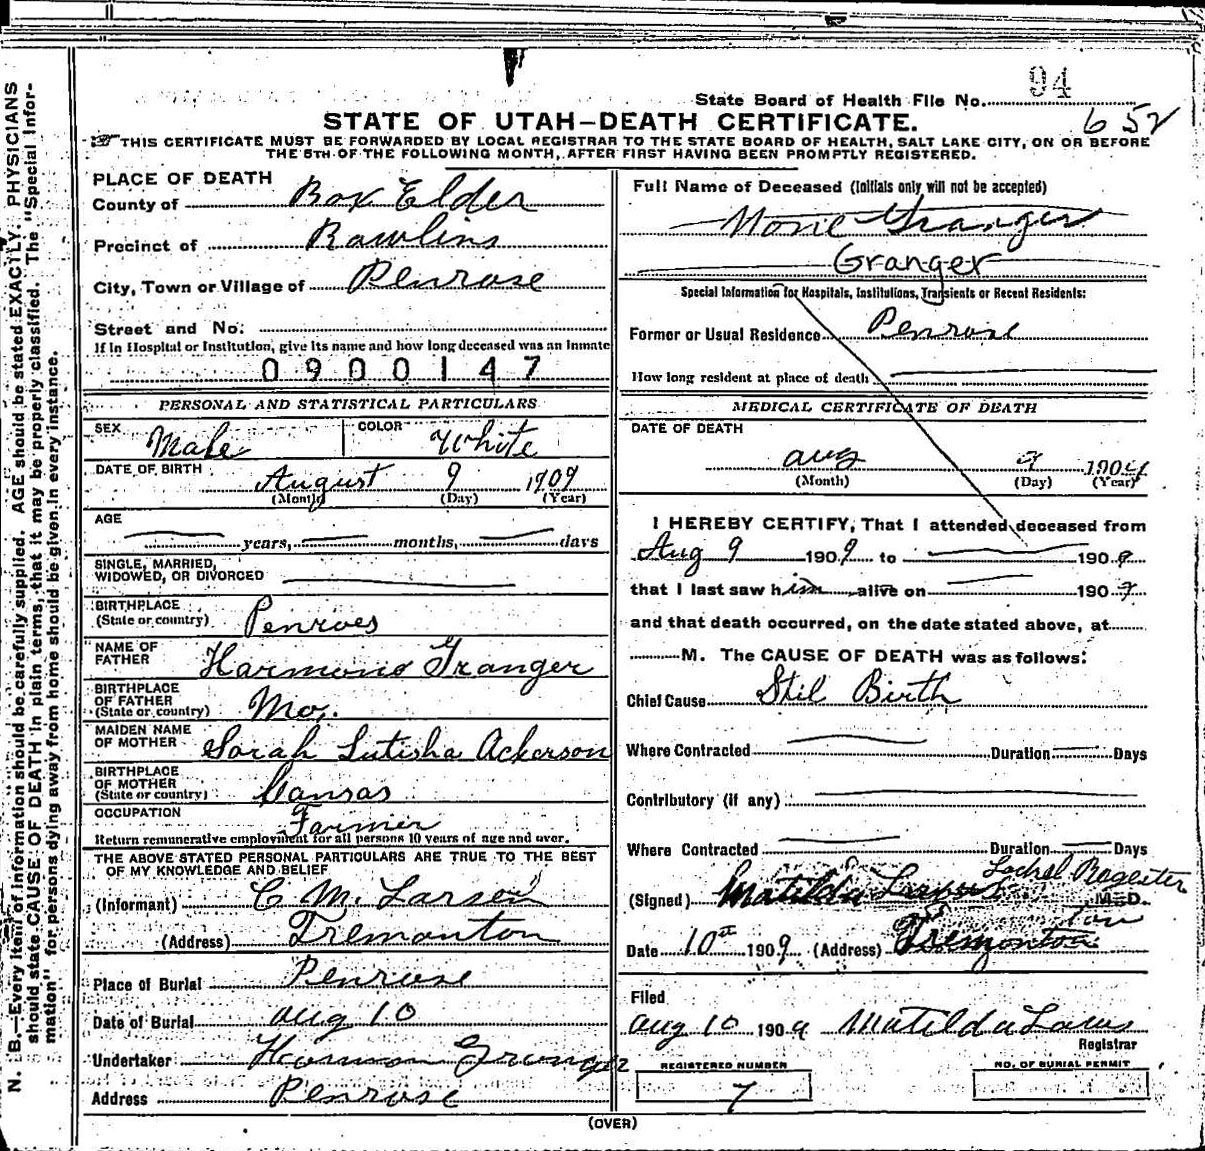 94
State Board of Health File No.
652
STATE OF UTAH—DEATH CERTIFICATE.
THIS CERTIFICATE MUST BE FORWARDED BY LOCAL REGISTRAR TO THE STATE BOARD OF HEALTH, SALT LAKE CITY, ON OR BEFORE
THE 5TH OF THE FOLLOWING MONTH, AFTER FIRST HAVING BEEN PROMPTLY REGISTERED.
N. B.—Every item of information should be carefully supplied. AGE should be stated EXACTLY. PHYSICIANS
should state CAUSE OF DEATH in plain terms, that it may be properly classified. The "Special Infor-
mation" for persons dying away from home should be given in every instance.
PLACE OF DEATH
County of Box Elder
Precinct of Rawlins
City, Town or Village of Penrose
Street and No.
If in Hospital or Institution, give its name and how long deceased was an inmate
0900147
PERSONAL AND STATISTICAL PARTICULARS
SEX Male COLOR White
DATE OF BIRTH August 9 1909
(Month) (Day) (Year)
AGE
years, months, days
SINGLE, MARRIED,
WIDOWED, OR DIVORCED
BIRTHPLACE
(State or country) Penroes
NAME OF
FATHER Harmond Granger
BIRTHPLACE
OF FATHER
(State or country) Mo.
MAIDEN NAME
OF MOTHER Sarah Lutisha Ackerson
BIRTHPLACE
OF MOTHER
(State or country) Cansas
OCCUPATION Farmer
Return remunerative employment for all persons 10 years of age and over.
THE ABOVE STATED PERSONAL PARTICULARS ARE TRUE TO THE BEST
OF MY KNOWLEDGE AND BELIEF
(Informant) C M. Larsen
(Address) Tremonton
Place of Burial Penrose
Date of Burial aug 10
Undertaker Harmon Granger
Address Penrose
Full Name of Deceased (Initials only will not be accepted)
None Granger
Granger
Special Information for Hospitals, Institutions, Transients or Recent Residents:
Former or Usual Residence Penrose
How long resident at place of death
MEDICAL CERTIFICATE OF DEATH
DATE OF DEATH
aug 9 1909
(Month) (Day) (Year)
I HEREBY CERTIFY, That I attended deceased from
Aug 9 1909 to 1909
that I last saw him alive on 1909
and that death occurred, on the date stated above, at
M. The CAUSE OF DEATH was as follows:
Chief Cause Stil Birth
Where Contracted Duration Days
Contributory (if any)
Where Contracted Duration Days
Lochel Regester
(Signed) Matilda M.D.
Date 10th 1909 (Address) Tremonton
Filed
aug 10 1909 Matilda
Registrar
REGISTERED NUMBER
7
NO. OF BURIAL PERMIT
(OVER)